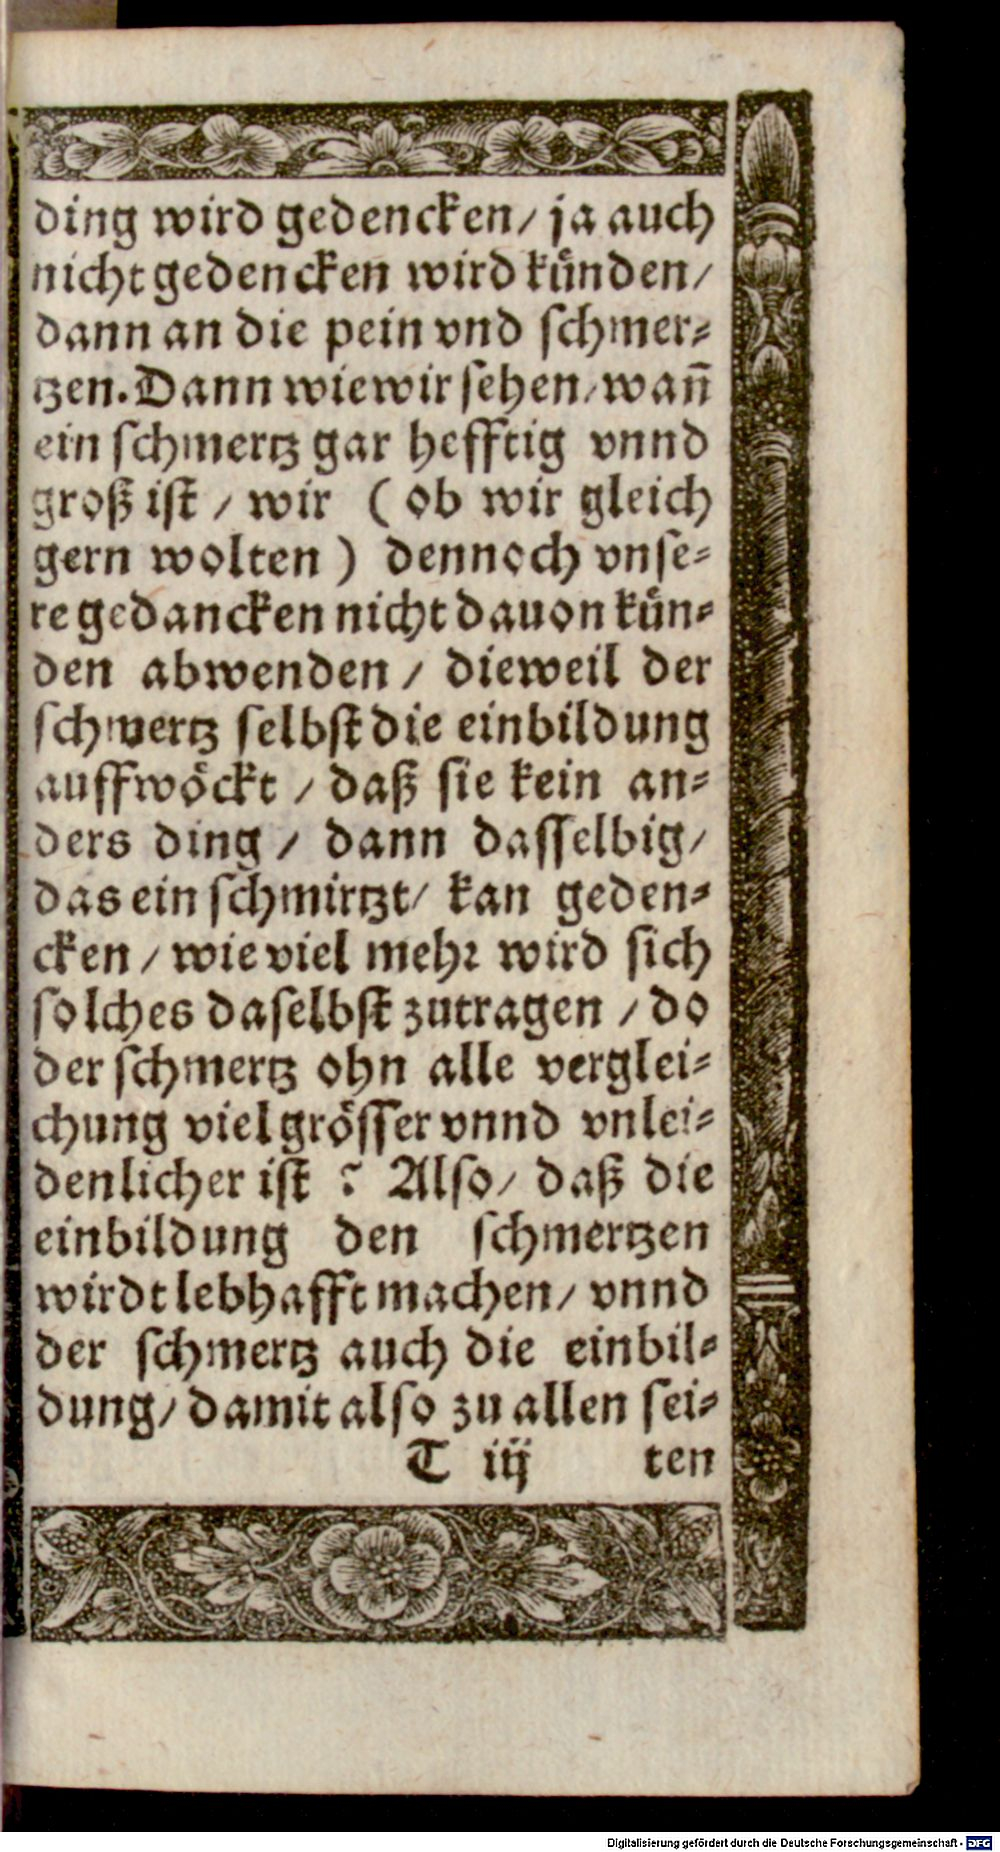 ding wird gedencken/ ja auch
nicht gedencken wird künden/
dann an die pein vnd schmer⸗
tzen. Dann wie wir sehen/ wañ
ein schmertz gar hefftig vnnd
groß ist / wir ( ob wir gleich
gern wolten ) dennoch vnse⸗
re gedancken nicht dauon kün⸗
den abwenden / dieweil der
schmertz selbst die einbildung
auffwöckt / daß sie kein an⸗
ders ding / dann dasselbig/
das ein schmirtzt/ kan geden⸗
cken / wie viel mehr wird sich
solches daselbst zutragen / do
der schmertz ohn alle verglei⸗
chung viel grösser vnnd vnlei⸗
denlicher ist ? Also/ daß die
einbildung den schmertzen
wirdt lebhafft machen/ vnnd
der schmertz auch die einbil⸗
dung/ damit also zu allen sei⸗
T iij ten
Digitalisierung gefördert durch die Deutsche Forschungsgemeinschaft - DFG